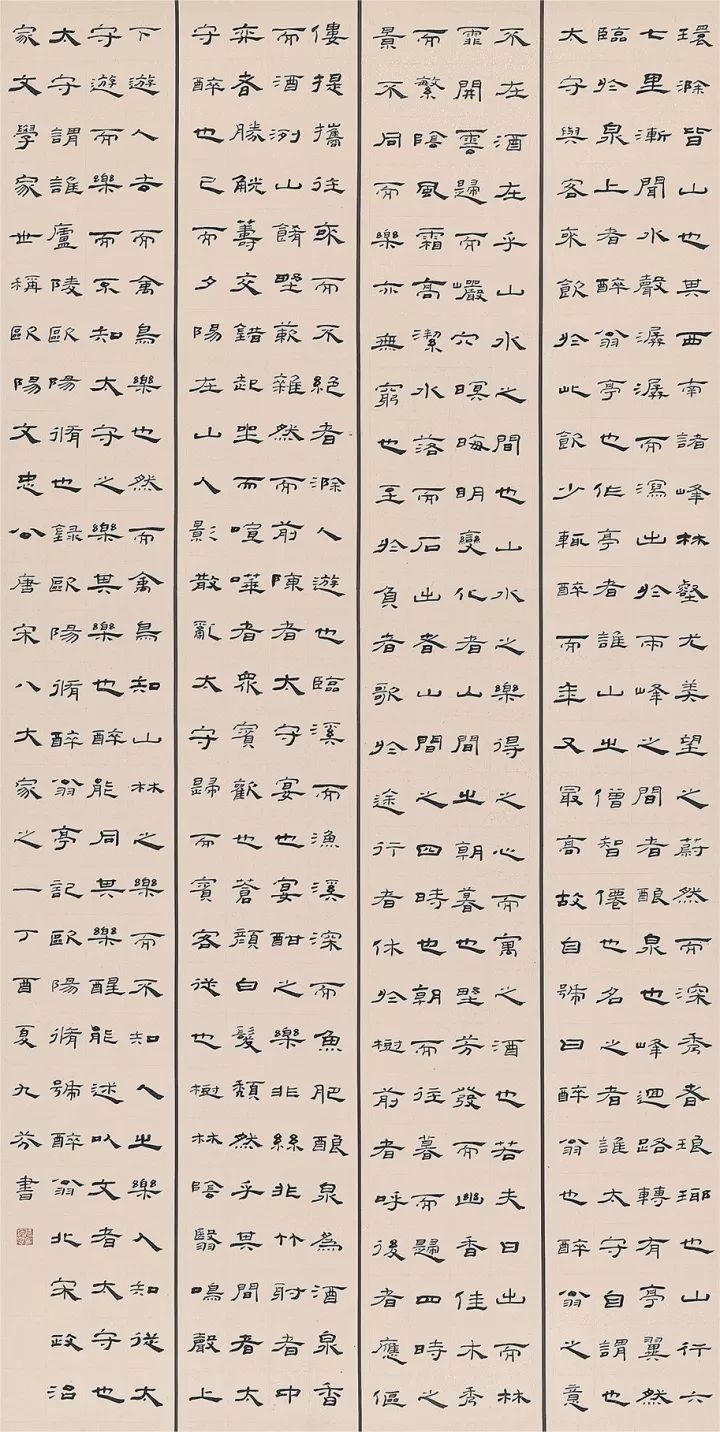 環滁皆山也其西南諸峰林壑尤美望之蔚然而深秀者琅瑘也山行六
七里漸聞水聲潺潺而瀉出於兩峰之間者釀泉也峰迴路轉有亭翼然
臨於泉上者醉翁亭也作亭者誰山之僧智僊也名之者誰太守自謂也
太守與客來飲於此飲少輒醉而年又最高故自號曰醉翁也醉翁之意
不在酒在乎山水之間也山水之樂得之心而寓之酒也若夫日出而林
霏開雲歸而巖穴暝晦明變化者山間之朝暮也野芳發而幽香佳木秀
而繁陰風霜高潔水落而石出者山間之四時也朝而往暮而歸四時之
景不同而樂亦無窮也至於負者歌於途行者休於樹前者呼後者應傴
僂提攜往來而不絕者滁人遊也臨溪而漁溪深而魚肥釀泉為酒泉香
而酒洌山餚野蔌雜然而前陳者太守宴也宴酣之樂非絲非竹射者中
弈者勝觥籌交錯起坐而喧嘩者眾賓歡也蒼顏白髮頹然乎其間者太
守醉也已而夕陽在山人影散亂太守歸而賓客從也樹林陰翳鳴聲上
下遊人去而禽鳥樂也然而禽鳥知山林之樂而不知人之樂人知從太
守遊而樂而不知太守之樂其樂也醉能同其樂醒能述以文者太守也
太守謂誰廬陵歐陽脩也錄歐陽脩醉翁亭記歐陽脩號醉翁北宋政治
家文學家世稱歐陽文忠公唐宋八大家之一丁酉夏九芬書